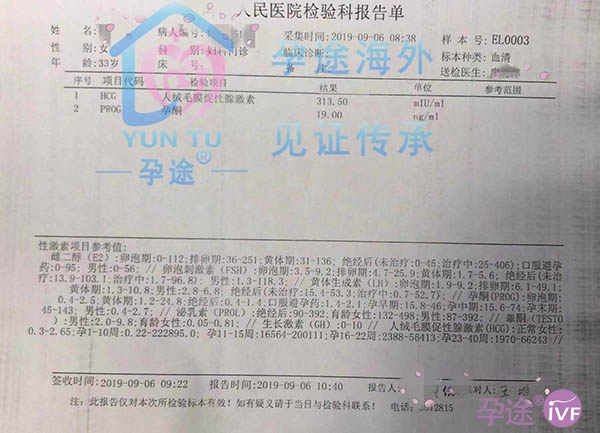 人民医院检验科报告单
姓 名: 病人编号: 采集时间:2019-09-06 08:38 样 本 号: EL0003
性 别:女 科 别:妇科门诊 临床诊断: 标本种类:血清
年 龄:33岁 床 号: 备 注: 送检医生:
序号 项目代码 检验项目 结果 单位 参考范围
1 HCG 人绒毛膜促性腺激素 313.50 mIU/ml
2 PROG 孕酮 19.00 ng/ml
孕途海外
见证传承
YUN TU
孕途®
性激素项目参考值:
雌二醇（E2）:卵泡期:0-112;排卵期:36-251;黄体期:31-136; 绝经后(未治疗:0-45;治疗中:25-406);口服避孕
药:0-95; 男性:0-56; // 卵泡刺激素（FSH）:卵泡期:3.5-9.2;排卵期:4.7-25.9;黄体期:1.7-5.6; 绝经后(未治
疗:13.9-103.1;治疗中:1.7-96.8) 男性:1.3-118.3; // 黄体生成素（LH）:卵泡期:1.9-9.2;排卵期:6.1-49.1;
黄体期:1.3-10.8;男性:2.8-6.8; 绝经后(未治疗:15.4-53.3;治疗中:0.7-52.7); //孕酮(PROG):卵泡期:
0.4-2.5;黄体期:1.2-24.8;绝经后:0.4-1.4;口服避孕药:1.4-2.1;孕早期:15.8-46;孕中期:15.6-74;孕末期:
45-143; 男性:0.4-2.7; // 泌乳素(PROL):绝经后:90-392;育龄女性:132-498;男性:87-392; // 睾酮(TESTO
):男性:2.0-9.8;育龄女性:0.05-0.81; // 生长激素(GH):0-10 // 人绒毛膜促性腺激素(HCG):正常女性:
0.3-2.65;孕1-10周:0.22-222895.0;孕11-15周:16564-200111;孕16-22周:2388-56413;孕23-40周:1970-66243 //
签收时间:2019-09-06 09:22 报告时间:2019-09-06 10:40 报告人: 核对人:
注: 此报告仅对本次所检验标本有效! 如有疑义请于当日与检验科联系! 电话: 3012815
孕途® iVF